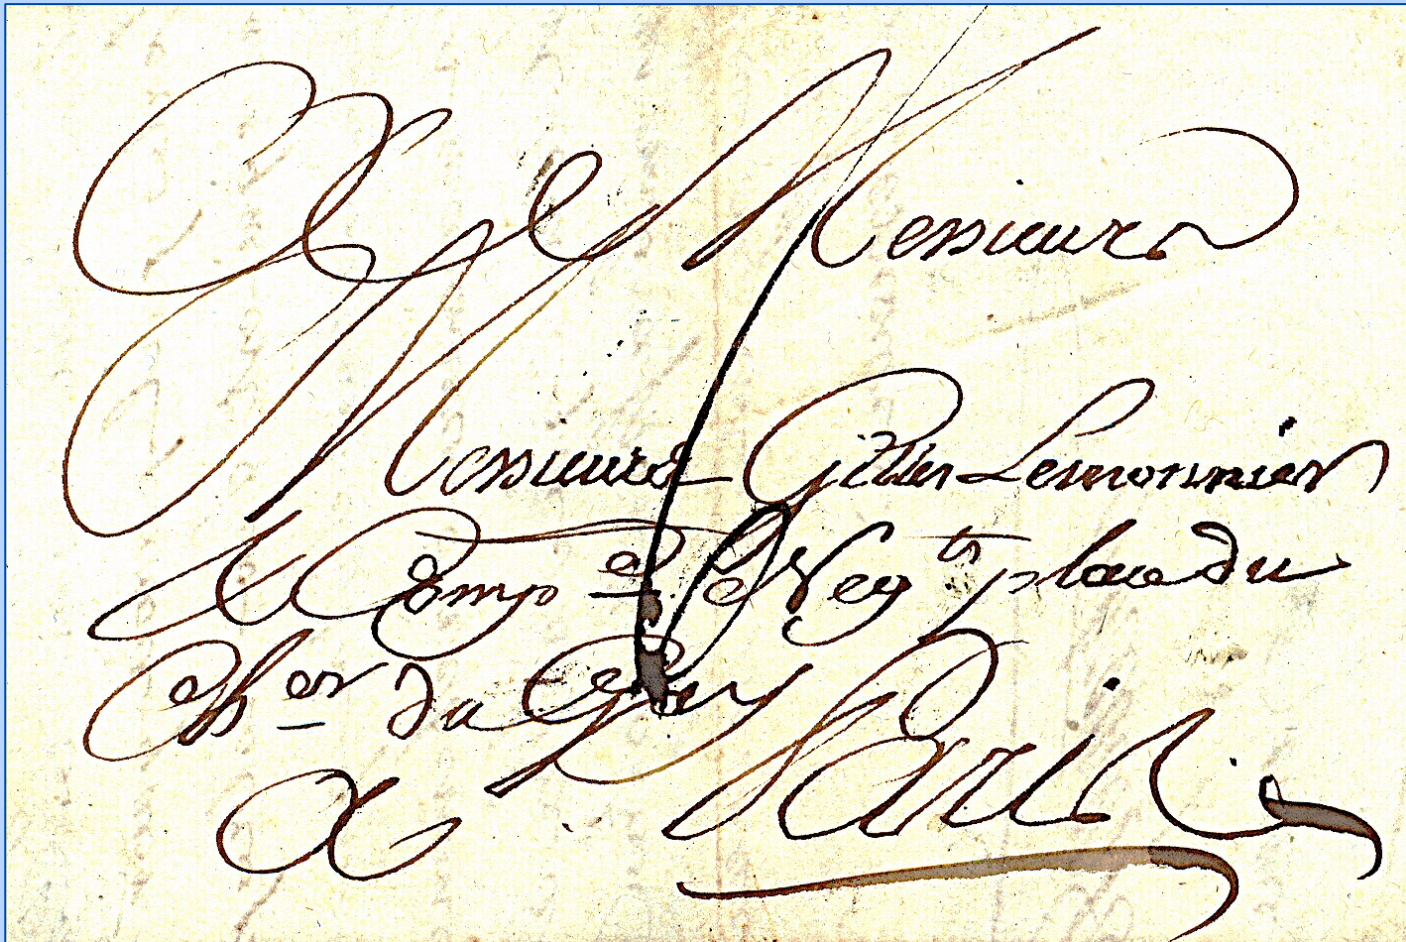 A Messieurs
Messieurs Gilles Lemonnier
& Comp.e Neg.ts place du
Ch.er du Guet
A Paris